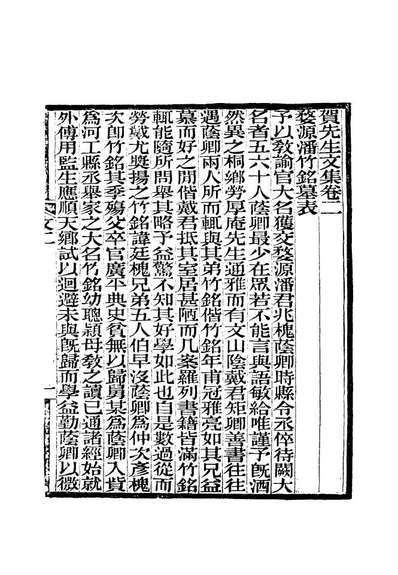 賀先生文集卷二
婺源潘竹銘墓表
予以教諭官大名獲交婺源潘君兆槐蔭卿時縣令丞倅待闕大
名者五六十人蔭卿最少在眾若不能言與語敏給唯謹予旣洒
然異之桐鄉勞厚庵先生通雅而有文山陰戴君矩卿善書往往
遇蔭卿兩人所而輒與其弟竹銘偕竹銘年甫冠雅亮如其兄益
慕而好之閒偕戴君抵其室居甚陋而几案羅列書籍皆滿竹銘
輒能隨所問舉其略予益驚不知其好學如此也自是數過從而
勞戴尤奬揚之竹銘諱廷槐兄弟五人伯早沒蔭卿爲仲次彥槐
次卽竹銘其季殤父卒官廣平典史貧無以歸舅某爲蔭卿入貲
爲河工縣丞舉家之大名竹銘幼聰穎母敎之讀已通諸經始就
外傅用監生應順天鄉試以迴避未與旣歸而學益勤蔭卿以微
文二
一